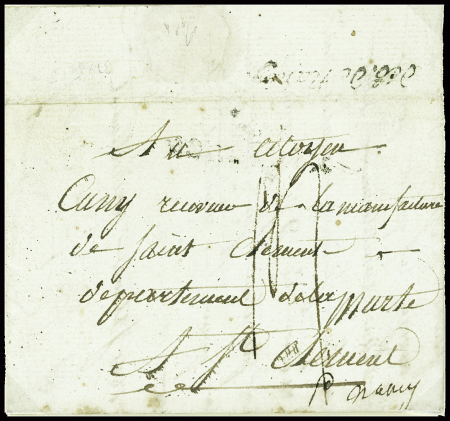 déb. de nancy
Au citoyen
Cuny receveur de la manufacture
de saint Clement
département de la Murte
A St. Clement
p nancy